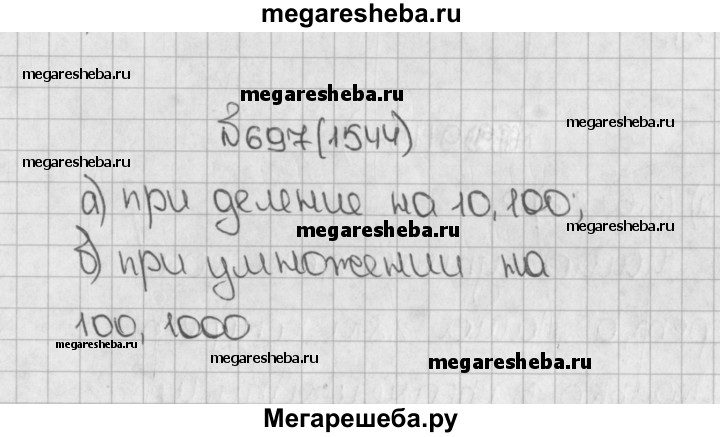 megaresheba.ru
megaresheba.ru
megaresheba.ru
megaresheba.ru
№697(1544)
megaresheba.ru
а) при деление на 10, 100;
megaresheba.ru
megaresheba.ru
б) при умножении на
100, 1000
megaresheba.ru
megaresheba.ru
megaresheba.ru
megaresheba.ru
Мегарешеба.ру